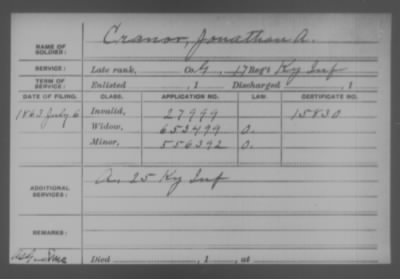 NAME OF SOLDIER: Cranor, Jonathan A.
SERVICE: Late rank, Co. G, 17 Reg't Ky Inf
TERM OF SERVICE: Enlisted , 1 Discharged , 1
DATE OF FILING. CLASS. APPLICATION NO. LAW. CERTIFICATE NO.
1863 July 6 Invalid, 27999 15830
Widow, 653499 O.
Minor, 556392 O.
ADDITIONAL SERVICES: A, 25 Ky Inf
REMARKS:
Died , 1 , at